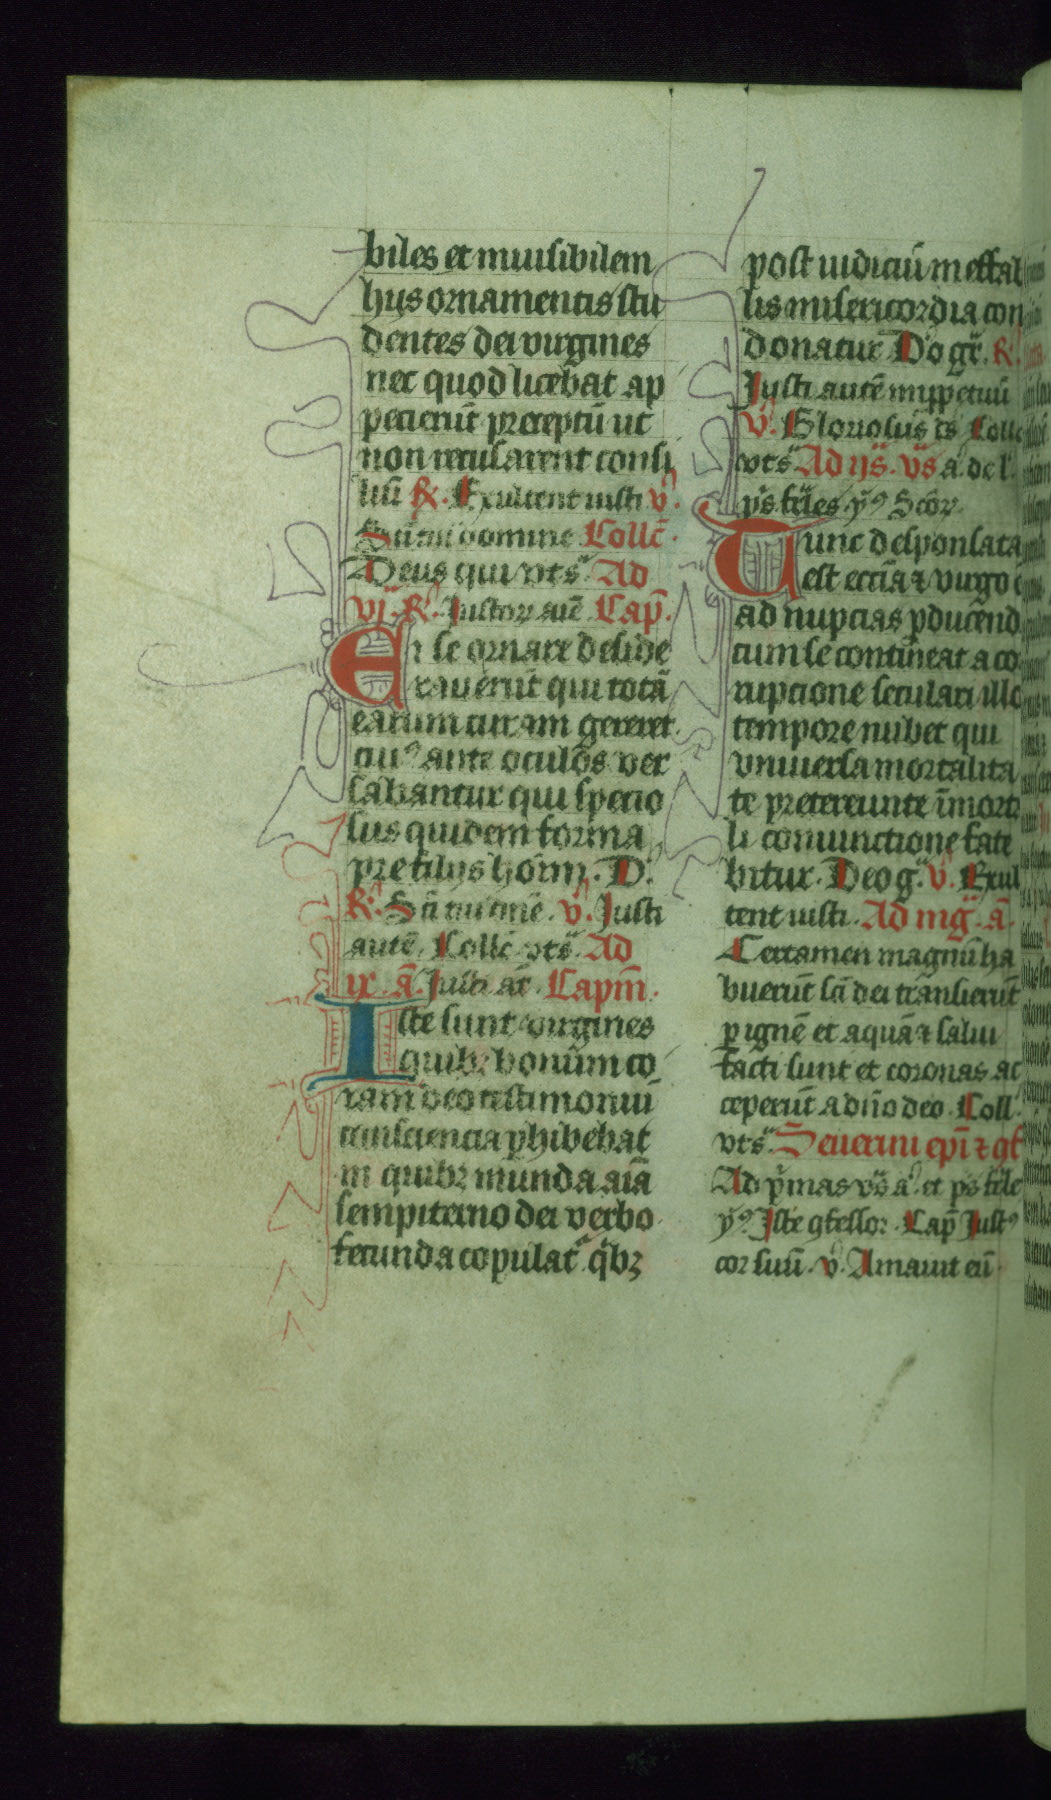 biles et inuisibilem
hijs ornamentis stu
dentes dei uirgines
nec quod licebat ap
pecierūt preceptū ut
non recusarent consi
liū R. Exultent iusti v.
Sūt tui domine Collc̄.
Deus qui vts̄ Ad
vj. R. Justoꝝ aūt Cap̄.
En se ornare deside
rauerūt qui totā
earum curam gereret
cuiꝰ ante oculos ver
sabantur qui specio
sus quidem forma
pre filijs hoīm. D.
R. Sūt tui dn̄e. v. Justi
autē. Collc̄ vts̄. Ad
ix. ā. Justi aūt. Capm̄.
Iste sunt virgines
quibꝫ bonūm co
ram deo testimoniū
consciencia ꝑhibebat
in quibꝫ munda aīa
sempiterno dei verbo
fecunda copulat̄ q̄bꝫ
post iudiciū ineffabi
lis misericordia con
donatur Deo gr̄. R.
Justi autē inꝑpetuū
v. Gloriosus ds̄ Collc̄
vts̄ Ad ijs̄. vs̄ ā de l.
ps̄ fr̄les. ẏꝰ Sc̄oꝝ
Tunc desponsata
est eccīa ⁊ uirgo
ad nupcias ꝑducend
cum se contineat a co
rupcione seculari illo
tempore nubet qui
vniuersa mortalita
te pretereunte īmorta
li coniunctione fate
bitur. Deo ḡ. v. Exul
tent iusti. Ad mḡ. ā.
Certamen magnū ha
buerūt sc̄i dei trānsierūt
ꝑ ignē et aquā ⁊ salui
facti sunt et coronas ac
ceperūt a dn̄o deo. Coll.
vts̄. Seuerini epī ⁊ ꝯf
Ad p̄mas vs̄ ā. et ps̄ fr̄le
ẏꝰ Iste ꝯfessor. Cap̄ Justꝰ
cor suū. v. Amauit eū.